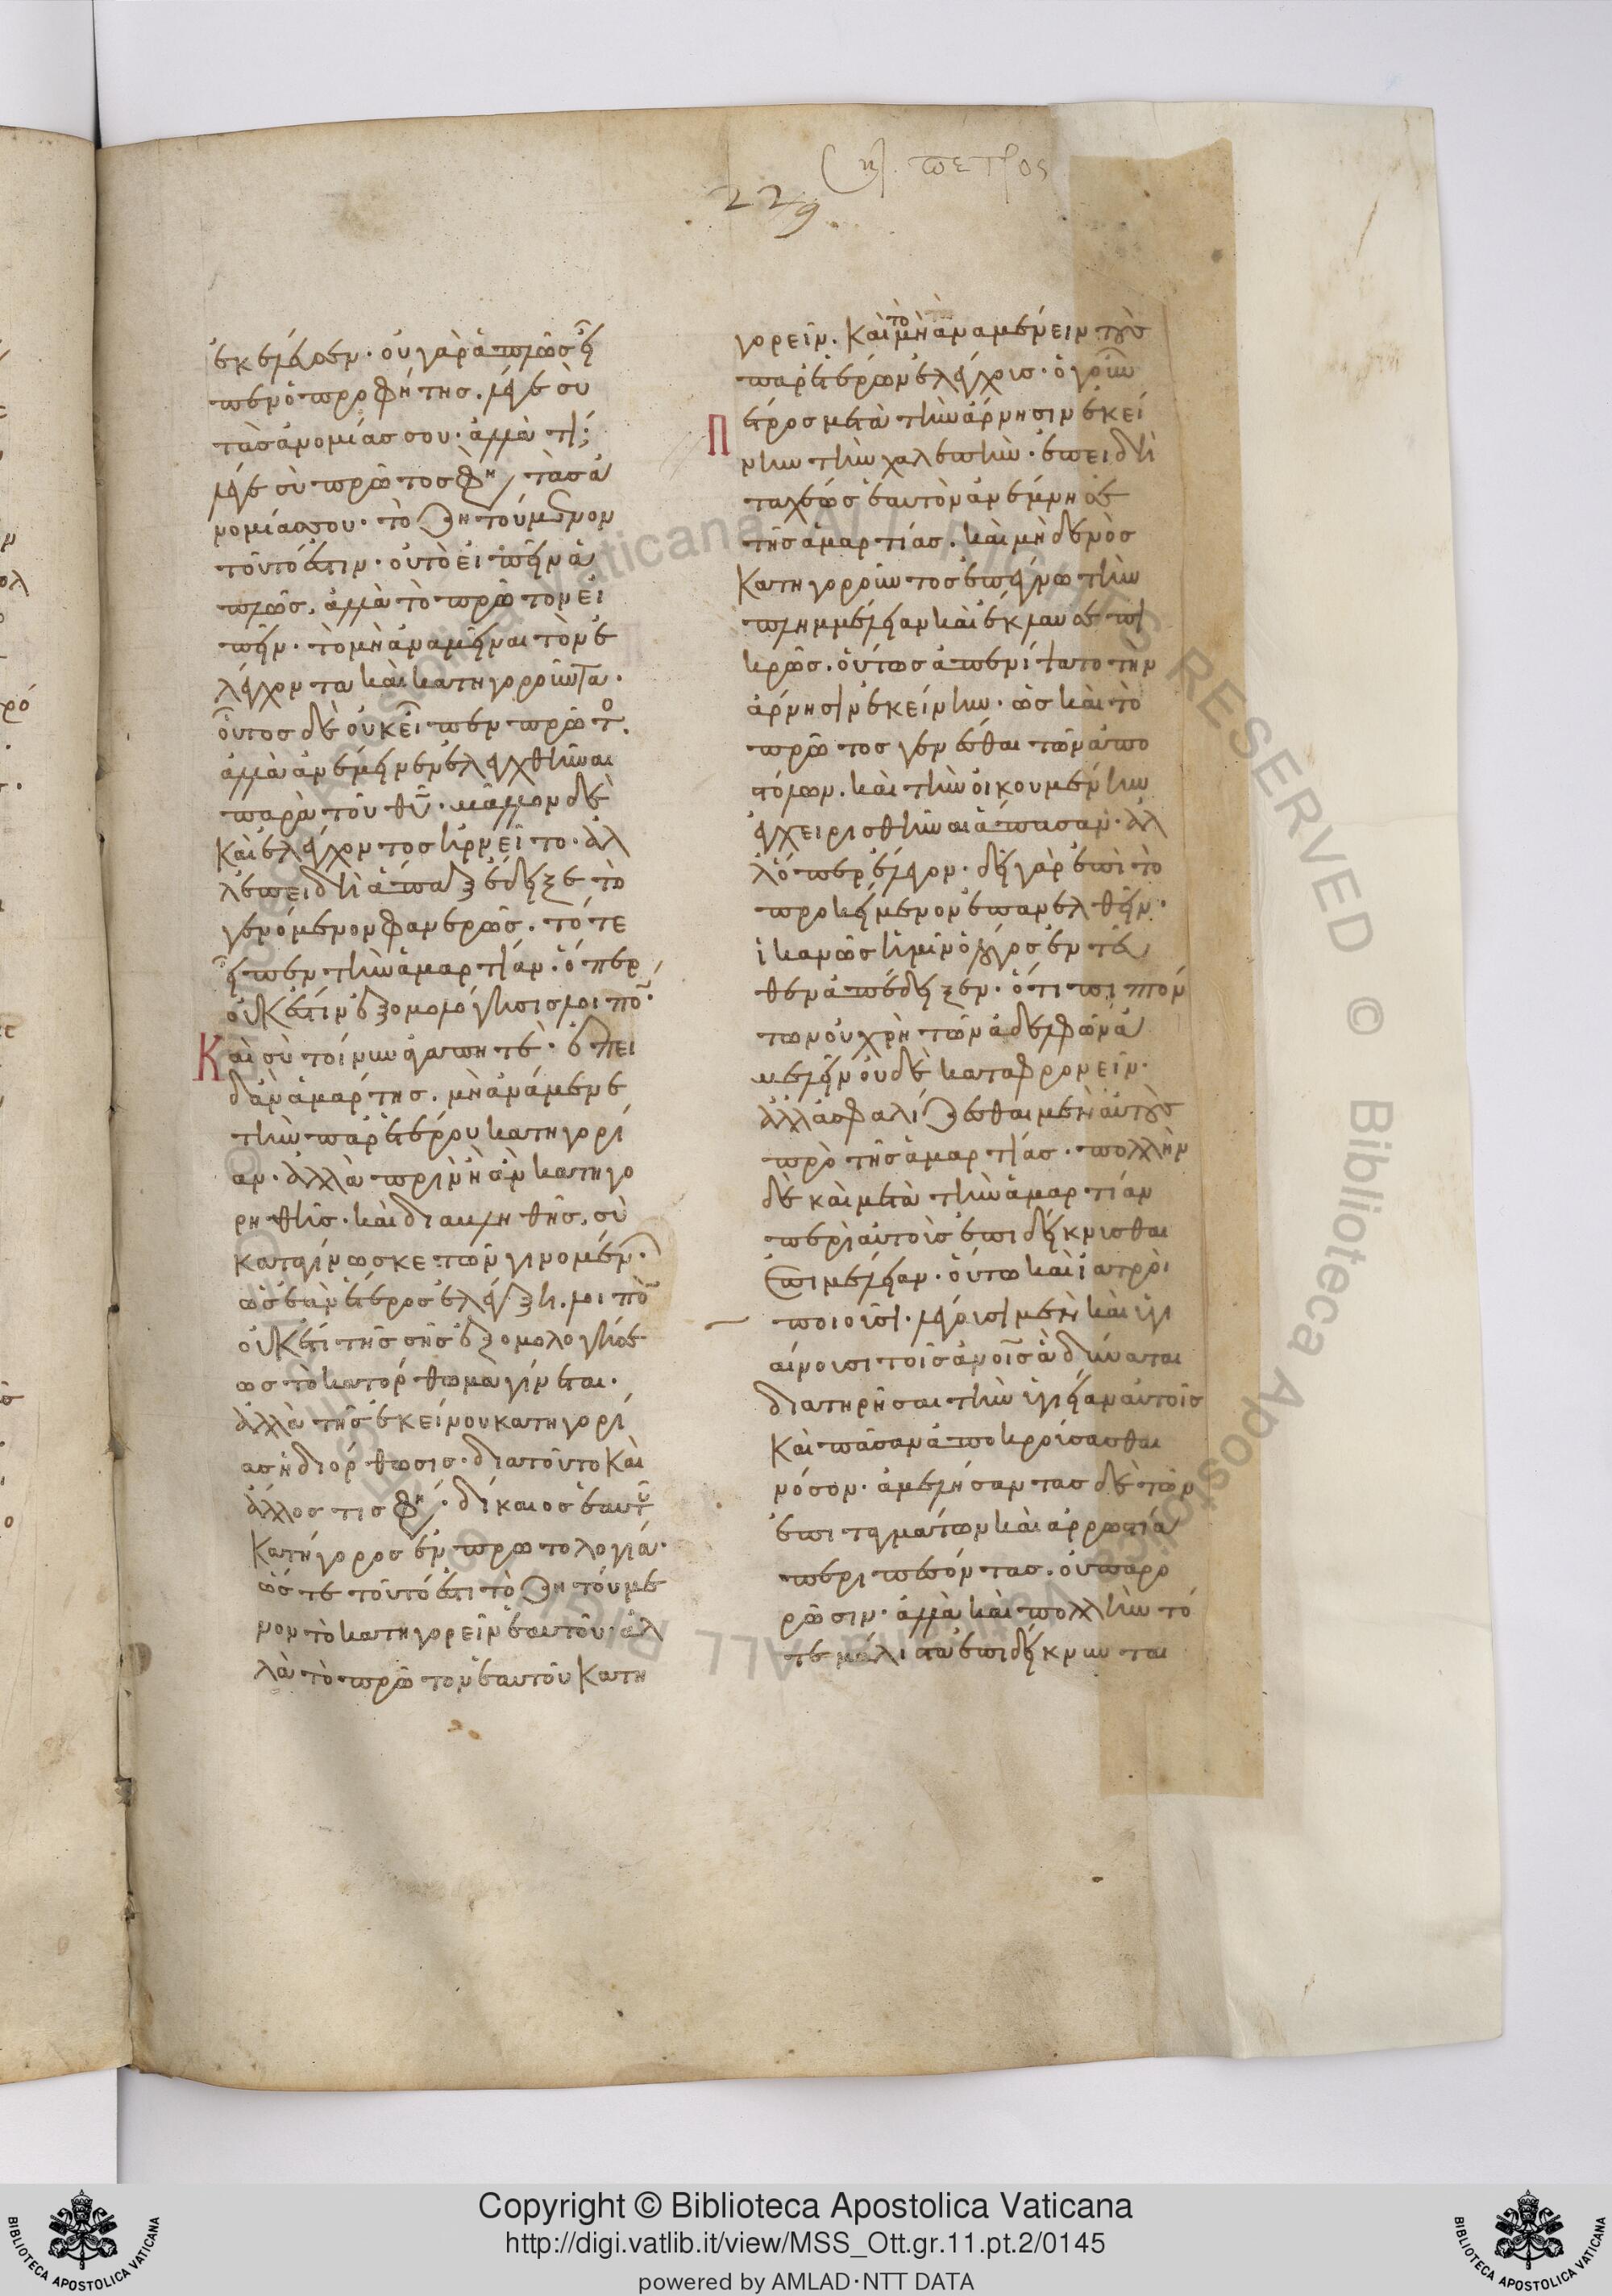 229
πετρος
ἐκέλευσεν· οὐ γὰρ ἁπλῶς εἶ
πεν ὁ προφήτης. λέγε σὺ
τὰς ἀνομίας σου· ἀλλὰ τί;
λέγε σὺ πρῶτος φη τὰς ἀ
νομίας σου· τὸ ζητούμενον
τοῦτό ἐστιν· οὐ τὸ εἰπεῖν ἁ
πλῶς, ἀλλὰ τὸ πρῶτον εἰ
πεῖν· τὸ μὴ ἀναμεῖναι τὸν ἐ
λέγχοντα καὶ κατηγοροῦντα.
οὗτος δὲ οὐκ εἶπεν πρῶτο.
ἀλλὰ ἀνέμεινεν ἐλεγχθῆναι
παρὰ τοῦ θυ. μᾶλλον δὲ
καὶ ἐλέγχοντος ἠρνεῖτο· ἀλ
λ' ἐπειδὴ ἅπαξ ἔδειξε τὸ
γενόμενον φανερῶς. τότε
εἶπεν τὴν ἁμαρτίαν. ὅπερ
οὐκ ἔστιν ἐξομολόγησις λοιπο.
Καὶ σὺ τοίνυν ἀγαπητὲ· ἐπει
δὰν ἁμάρτης. μὴ ἀνάμενε
τὴν παρ' ἑτέρου κατηγορί
αν. ἀλλὰ πρὶν ἢ σὺν κατηγο
ρηθῆς· καὶ διαμληθῆς, σὺ
καταγίνωσκε τῶν γινομεν.
ὡς ἐὰν ἕτερος ἐλέγξη. λοιπο
οὐκ ἔτι τῆς σῆς ἐξομολογήσε
ως τὸ κατόρθωμα γίνεται.
ἀλλὰ τῆς ἐκείνου κατηγορί
ας ἡ διόρθωσις. διὰ τοῦτο καὶ
ἄλλος τις φη· δίκαιος ἑαυτου
κατήγορος ἐν πρωτολογία.
ὥστε τοῦτό ἐστι τὸ ζητούμε
νον τὸ κατηγορεῖν ἑαυτοῦ· ἀλ
λὰ τὸ πρῶτον ἑαυτοῦ κατη
γορεῖν. καὶ τὸ μὴ ἀναμένειν τοὺς
παρ' ἑτέρων ἐλέγχους. ὁ γοῦν
Πέτρος μετὰ τὴν ἄρνησιν ἐκεί
νην τὴν χαλεπὴν. ἐπειδὴ
ταχέως ἑαυτὸν ἀνέμνησε
τῆς ἁμαρτίας. καὶ μὴ δενὸς
κατηγοροῦντος ἐπέγνω τὴν
πλημμέλειαν καὶ ἔκλαυσε πι
κρῶς. οὕτως ἀπενίψατο τὴν
ἄρνησιν ἐκείνην. ὡς καὶ τὸ
πρῶτος γενέσθαι τῶν ἀπο
στόλων. καὶ τὴν οἰκουμένην
ἐγχειρισθῆναι ἅπασαν. ἀλ
λ' ὅπερ ἔλεγον· δεῖ γὰρ ἐπὶ τὸ
προκείμενον ἐπανελθεῖν.
ἱκανῶς ἡμῖν ὁ λόγος ἐντεῦ
θεν ἀπέδειξεν. ὅτι πιπτόν
των οὐ χρὴ τῶν ἀδελφῶν ἀ
μελεῖν οὐδὲ καταφρονεῖν.
ἀλλ' ἀσφαλίζεσθαι μὲν αὐτοὺς
πρὸ τῆς ἁμαρτίας. πολλὴν
δὲ καὶ μετὰ τὴν ἁμαρτίαν
περὶ αὐτοὺς ἐπιδείκνυσθαι
ἐπιμέλειαν. οὕτω καὶ ἰατρὸι
ποιοῦσι. λέγουσι μὲν καὶ ὑγι
αίνουσι τοῖς ανοις ἃ δύναται
διατηρῆσαι τὴν ὑγείαν αὐτοῖς
καὶ πᾶσαν ἀποκρούσασθαι
νόσον. ἀμελήσαντας δὲ τῶν
ἐπιταγμάτων καὶ ἀρρωστία
περιπεσόντας. οὐ παρο
ρῶσιν. ἀλλὰ καὶ πολλὴν τό
τε μάλιστα ἐπιδείκνυνται
Copyright © Biblioteca Apostolica Vaticana
http://digi.vatlib.it/view/MSS_Ott.gr.11.pt.2/0145
powered by AMLAD·NTT DATA